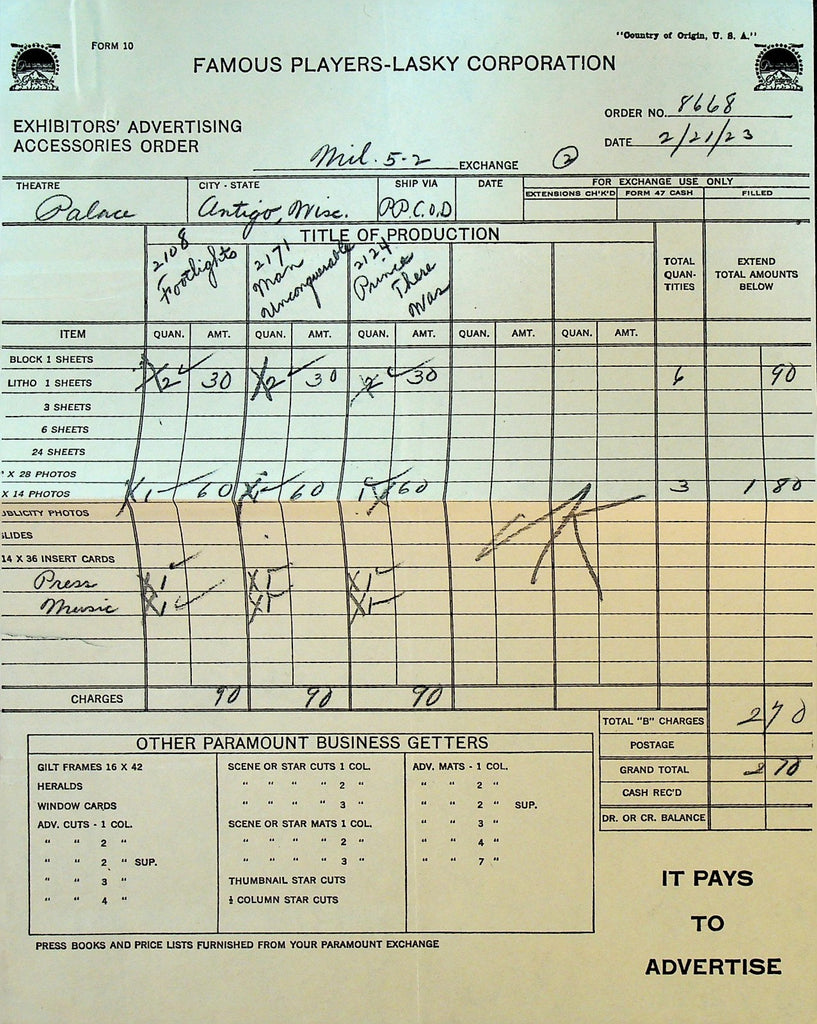 FORM 10
"Country of Origin, U. S. A."
FAMOUS PLAYERS-LASKY CORPORATION
ORDER NO. 8668
EXHIBITORS' ADVERTISING
ACCESSORIES ORDER
DATE 2/21/23
Mil. 5-2 EXCHANGE 2
THEATRE CITY - STATE SHIP VIA DATE FOR EXCHANGE USE ONLY
EXTENSIONS CH'K'D FORM 47 CASH FILLED
Palace Antigo, Wisc. P.P.C.O.D
TITLE OF PRODUCTION
2108 Footlights
2171 Man Unconquerable
2124 Prince There Was
TOTAL QUAN-TITIES
EXTEND TOTAL AMOUNTS BELOW
ITEM QUAN. AMT. QUAN. AMT. QUAN. AMT. QUAN. AMT. QUAN. AMT.
BLOCK 1 SHEETS
LITHO 1 SHEETS X2 30 X2 30 X2 30 6 90
3 SHEETS
6 SHEETS
24 SHEETS
" X 28 PHOTOS
X 14 PHOTOS X1 60 X1 60 1X 60 3 1 80
UBLICITY PHOTOS
SLIDES
14 X 36 INSERT CARDS
Press X1 X1 X1
Music X1 X1 X1
CHARGES 90 90 90
TOTAL "B" CHARGES 2 70
POSTAGE
GRAND TOTAL 2 70
CASH REC'D
DR. OR CR. BALANCE
OTHER PARAMOUNT BUSINESS GETTERS
GILT FRAMES 16 X 42
HERALDS
WINDOW CARDS
ADV. CUTS - 1 COL.
" " 2 "
" " 2 " SUP.
" " 3 "
" " 4 "
SCENE OR STAR CUTS 1 COL.
" " " " 2 "
" " " " 3 "
SCENE OR STAR MATS 1 COL.
" " " " 2 "
" " " " 3 "
THUMBNAIL STAR CUTS
½ COLUMN STAR CUTS
ADV. MATS - 1 COL.
" " 2 "
" " 2 " SUP.
" " 3 "
" " 4 "
" " 7 "
PRESS BOOKS AND PRICE LISTS FURNISHED FROM YOUR PARAMOUNT EXCHANGE
IT PAYS
TO
ADVERTISE